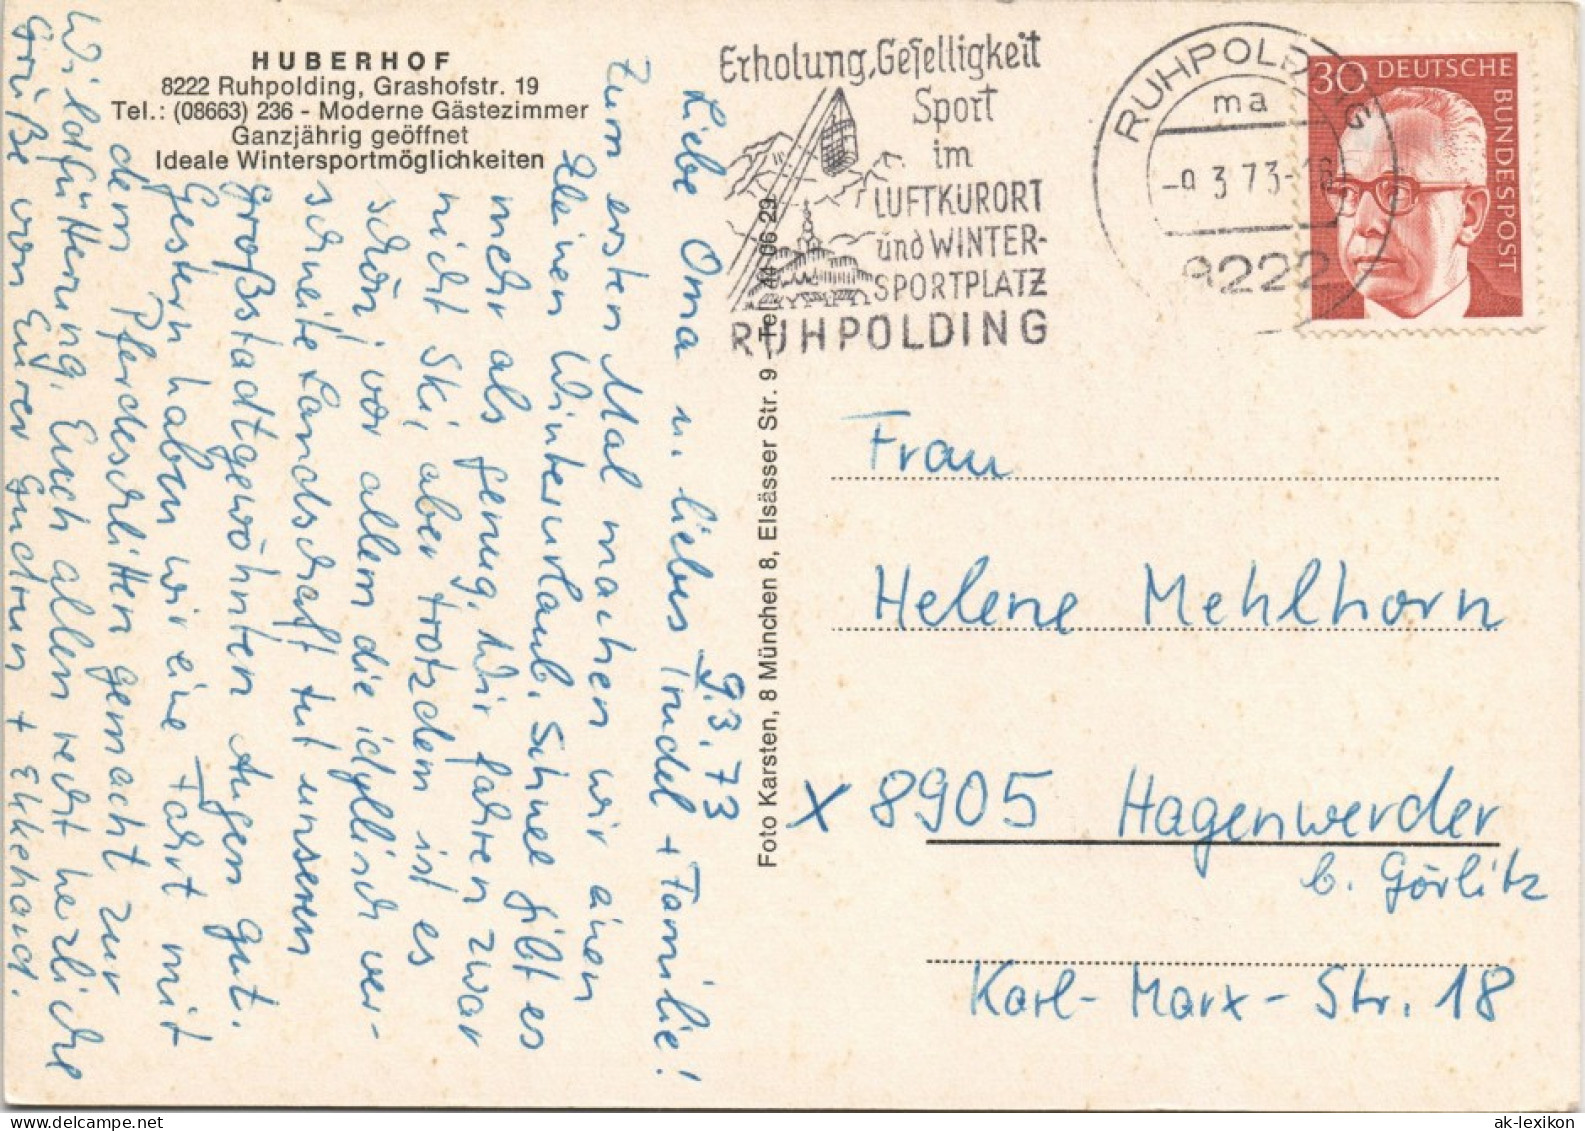 HUBERHOF
8222 Ruhpolding, Grashofstr. 19
Tel.: (08663) 236 - Moderne Gästezimmer
Ganzjährig geöffnet
Ideale Wintersportmöglichkeiten
9.3.73
Liebe Oma u. liebes Trudel + Familie!
Zum ersten Mal machen wir einen
kleinen Winterurlaub. Schnee gibt es
mehr als genug. Wir fahren zwar
nicht Ski, aber trotzdem ist es
schön, vor allem die idyllisch ver-
schneite Landschaft tut unseren
großstadtgewöhnten Augen gut.
Gestern haben wir eine Fahrt mit
dem Pferdeschlitten gemacht zur
Wildfütterung. Euch allen recht herzliche
Grüße von Eurer Gudrun + Ekkehard.
Foto Karsten, 8 München 8, Elsässer Str. 9 - Tel. 44 06 29
Erholung, Geselligkeit
Sport
im
LUFTKURORT
und WINTER-
SPORTPLATZ
RUHPOLDING
RUHPOLDING
ma
-9.3.73-
8222
30 DEUTSCHE
BUNDESPOST
Frau
Helene Mehlhorn
X 8905 Hagenwerder
b. Görlitz
Karl-Marx-Str. 18
ak-lexikon.com